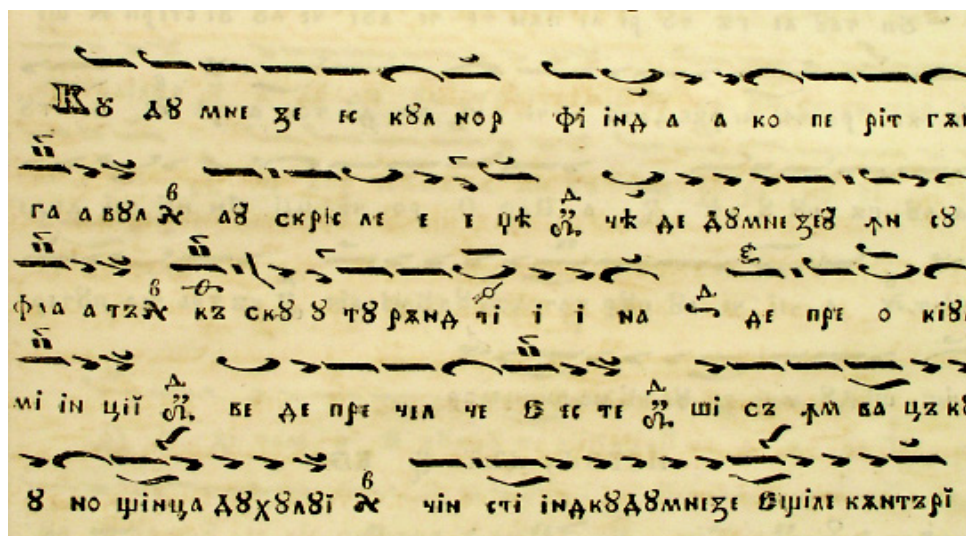 Кꙋ дꙋ мне ꙁе ес кꙋл нор фі інд а а ко пе ріт гѫн
га а вꙋл аꙋ скріс ле е е џѣ чѣ де дꙋмнеꙁеꙋ ꙟн сꙋ
фла а тъ къ скꙋ ꙋ тꙋ рѫнд чі і і на де пре о кіꙋл
мі ін ції ве де пре чел че Есте ші съ ꙟм ва цъ кꙋ
ꙋ но щінца дꙋхꙋлꙋї чін сті індкꙋдꙋмнеꙁе Ещіле кѫнтърї